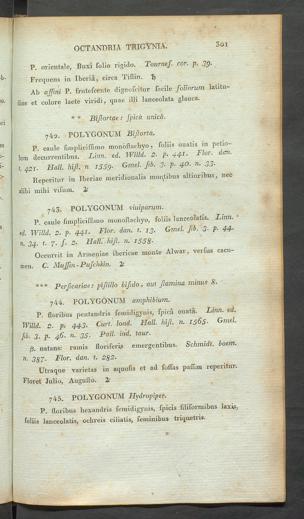 OCTANDRIA TRIGYNIA. 301
P. orientale, Buxi folio rigido. Tournef. cor. p. 39.
Frequens in Iberiâ, circa Tiflin. ♄
Ab affini P. frutescente dignoſcitur facile foliorum latitu-
dine et colore laete viridi, quae illi lanceolata glauca.
** Biſtortae: ſpicâ unicâ.
742. POLYGONUM Biſtorta.
P. caule ſimpliciſſimo monoſtachyo, foliis ovatis in petio-
lum decurrentibus. Linn. ed. Willd. 2. p. 441. Flor. dan.
t. 421. Hall. hiſt. n. 1559. Gmel. ſib. 3. p. 40. n. 33.
Reperitur in Iberiae meridionalis montibus altioribus, nec
alibi mihi viſum. ♃
743. POLYGONUM viviparum.
P. caule ſimpliciſſimo monoſtachyo, foliis lanceolatis. Linn.
ed. Willd. 2. p. 441. Flor. dan. t. 13. Gmel. ſib. 3. p. 44.
n. 34. t. 7. f. 2. Hall. hiſt. n. 1558.
Occurrit in Armeniae ibericae monte Alwar, verſus cacu-
men. C. Muſſin-Puſchkin. ♃
*** Perſicariae: piſtillo bifido, aut ſtamina minus 8.
744. POLYGONUM amphibium.
P. floribus pentandris ſemidigynis, ſpicâ ovatâ. Linn. ed.
Willd. 2. p. 443. Curt. lond. Hall. hiſt. n. 1565. Gmel.
ſib. 3. p. 46. n. 35. Pall. ind. taur.
β. natans: ramis floriferis emergentibus. Schmidt. boem.
n. 387. Flor. dan. t. 282.
Utraque varietas in aquoſis et ad foſſas paſſim reperitur.
Floret Julio, Auguſto. ♃
745. POLYGONUM Hydropiper.
P. floribus hexandris ſemidigynis, ſpicis filiformibus laxis,
foliis lanceolatis, ochreis ciliatis, ſeminibus triquetris.